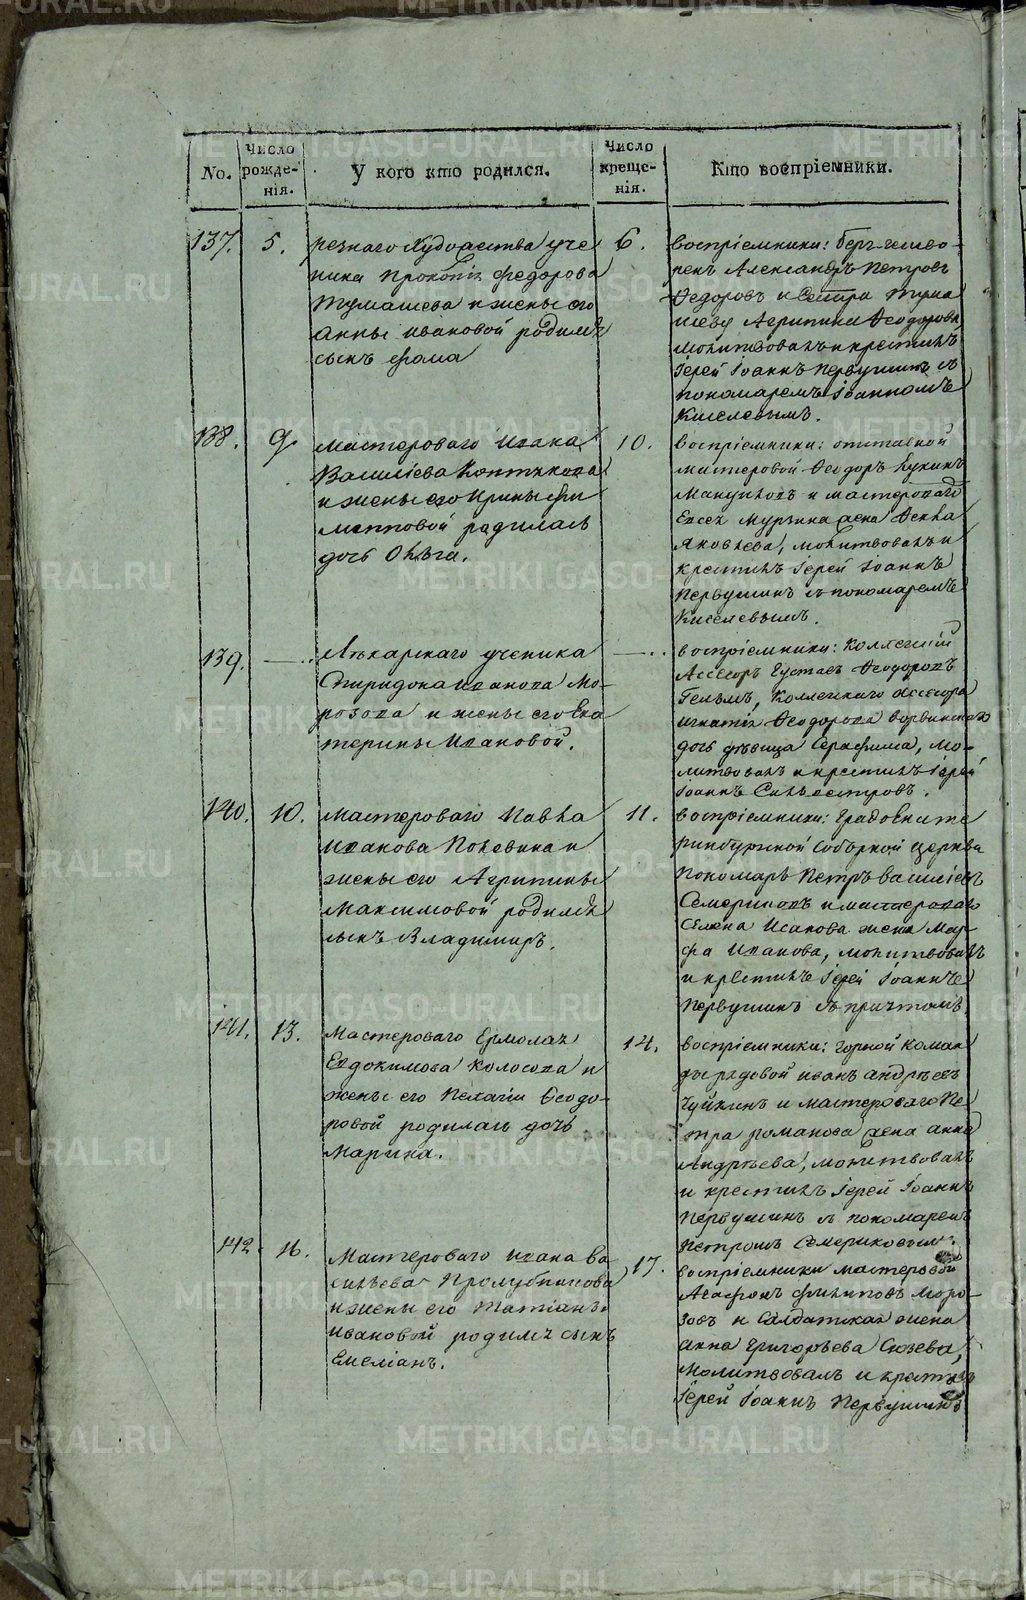 No.
Число рожде-нія.
У кого кто родился.
Число креще-нія.
Кто воспріемники.
137.
5.
резнаго Художества уче
ника Прокопія Федорова
Тумашева и жены его
Анны Ивановой родился
сынъ Фома
6.
воспріемники: Берг-гешво-
ренъ Александръ Петровъ
Федоровъ и Сестра Тума
шеву Агрипина Ѳеодорова
молитвовалъ и крестилъ
Іерей Іоаннъ Первушинъ съ
пономаремъ Іоанномъ
Киселевымъ.
138.
9.
Мастероваго Ивана
Васильева
и жены его Ирины Фи
липповой родилась
дочь Ольга.
10.
воспріемники: отставной
мастеровой Ѳеодоръ Лукинъ
и мастероваго
Мурзина жена Ѳекла
Яковлева, молитвовалъ и
крестилъ Іерей Іоаннъ
Первушинъ съ пономаремъ
Киселевымъ.
139.
Лѣкарскаго ученика
Спиридона Иванова Мо-
розова и жены его Ека
терины Ивановой.
воспріемники: Коллежскій
Асессоръ Густавъ Ѳеодоровъ
Гельмъ, Коллежскаго Асессора
Игнатія Ѳеодорова
дочь дѣвица Серафима, мо-
литвовалъ и крестилъ Іерей
Іоаннъ Сильвестровъ.
140.
10.
Мастероваго Павла
Иванова Полевина и
жены его Агрипины
Максимовой родился
сынъ Владимиръ.
11.
воспріемники: Градоекате
ринбургской Соборной церкви
пономарь Петръ Васильевъ
Семериковъ и мастероваго
Семена Исакова жена Мар-
фа Иванова, молитвовалъ
и крестилъ Іерей Іоаннъ
Первушинъ съ причтомъ.
141.
13.
Мастероваго Ермолая
Евдокимова Колосова и
жены его Пелагіи Ѳеодо-
ровой родилась дочь
Марина.
14.
воспріемники: горной коман
ды рядовой Иванъ Андреевъ
Чуйкинъ и мастероваго Пе
тра Романова жена Анна
Андреева, молитвовалъ
и крестилъ Іерей Іоаннъ
Первушинъ съ пономаремъ
Петромъ Семериковымъ.
142.
16.
Мастероваго Ивана Ва
сильева Пролубникова
и жены его Татіаны
Ивановой родился сынъ
Емеліанъ.
17.
воспріемники мастеровой
Агафонъ Филиповъ Моро-
зовъ и Салдатская жена
Анна Григорьева Сюзева,
молитвовалъ и крестилъ
Іерей Іоаннъ Первушинъ
METRIKI.GASO-URAL.RU